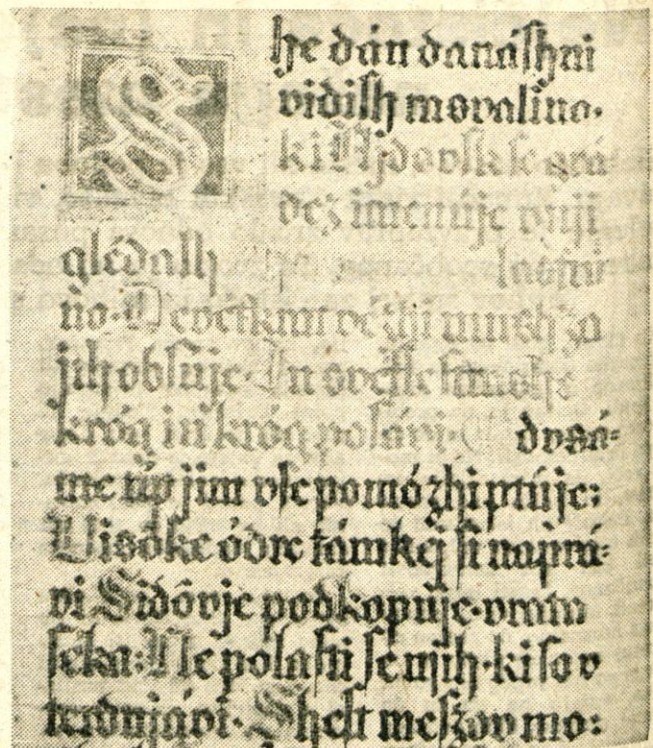 She dán danáſhni
vidiſh movalino·
ki Ajdovſk ſe grá
dez imenúje vnji
glédaſh laſtni
no· Devétkrat vézhi
jih obſuje· In
króg in króg poſtávi· dvsá=
me úp jim vſe pomózhi ptúje:
Viſôke ódre támkej ſi naprá=
vi Sidôvje podkopuje· vrata
ſeka: Ne polaſti ſe njih· ki ſo v
terdnjávi· Sheſt meſzov mo: